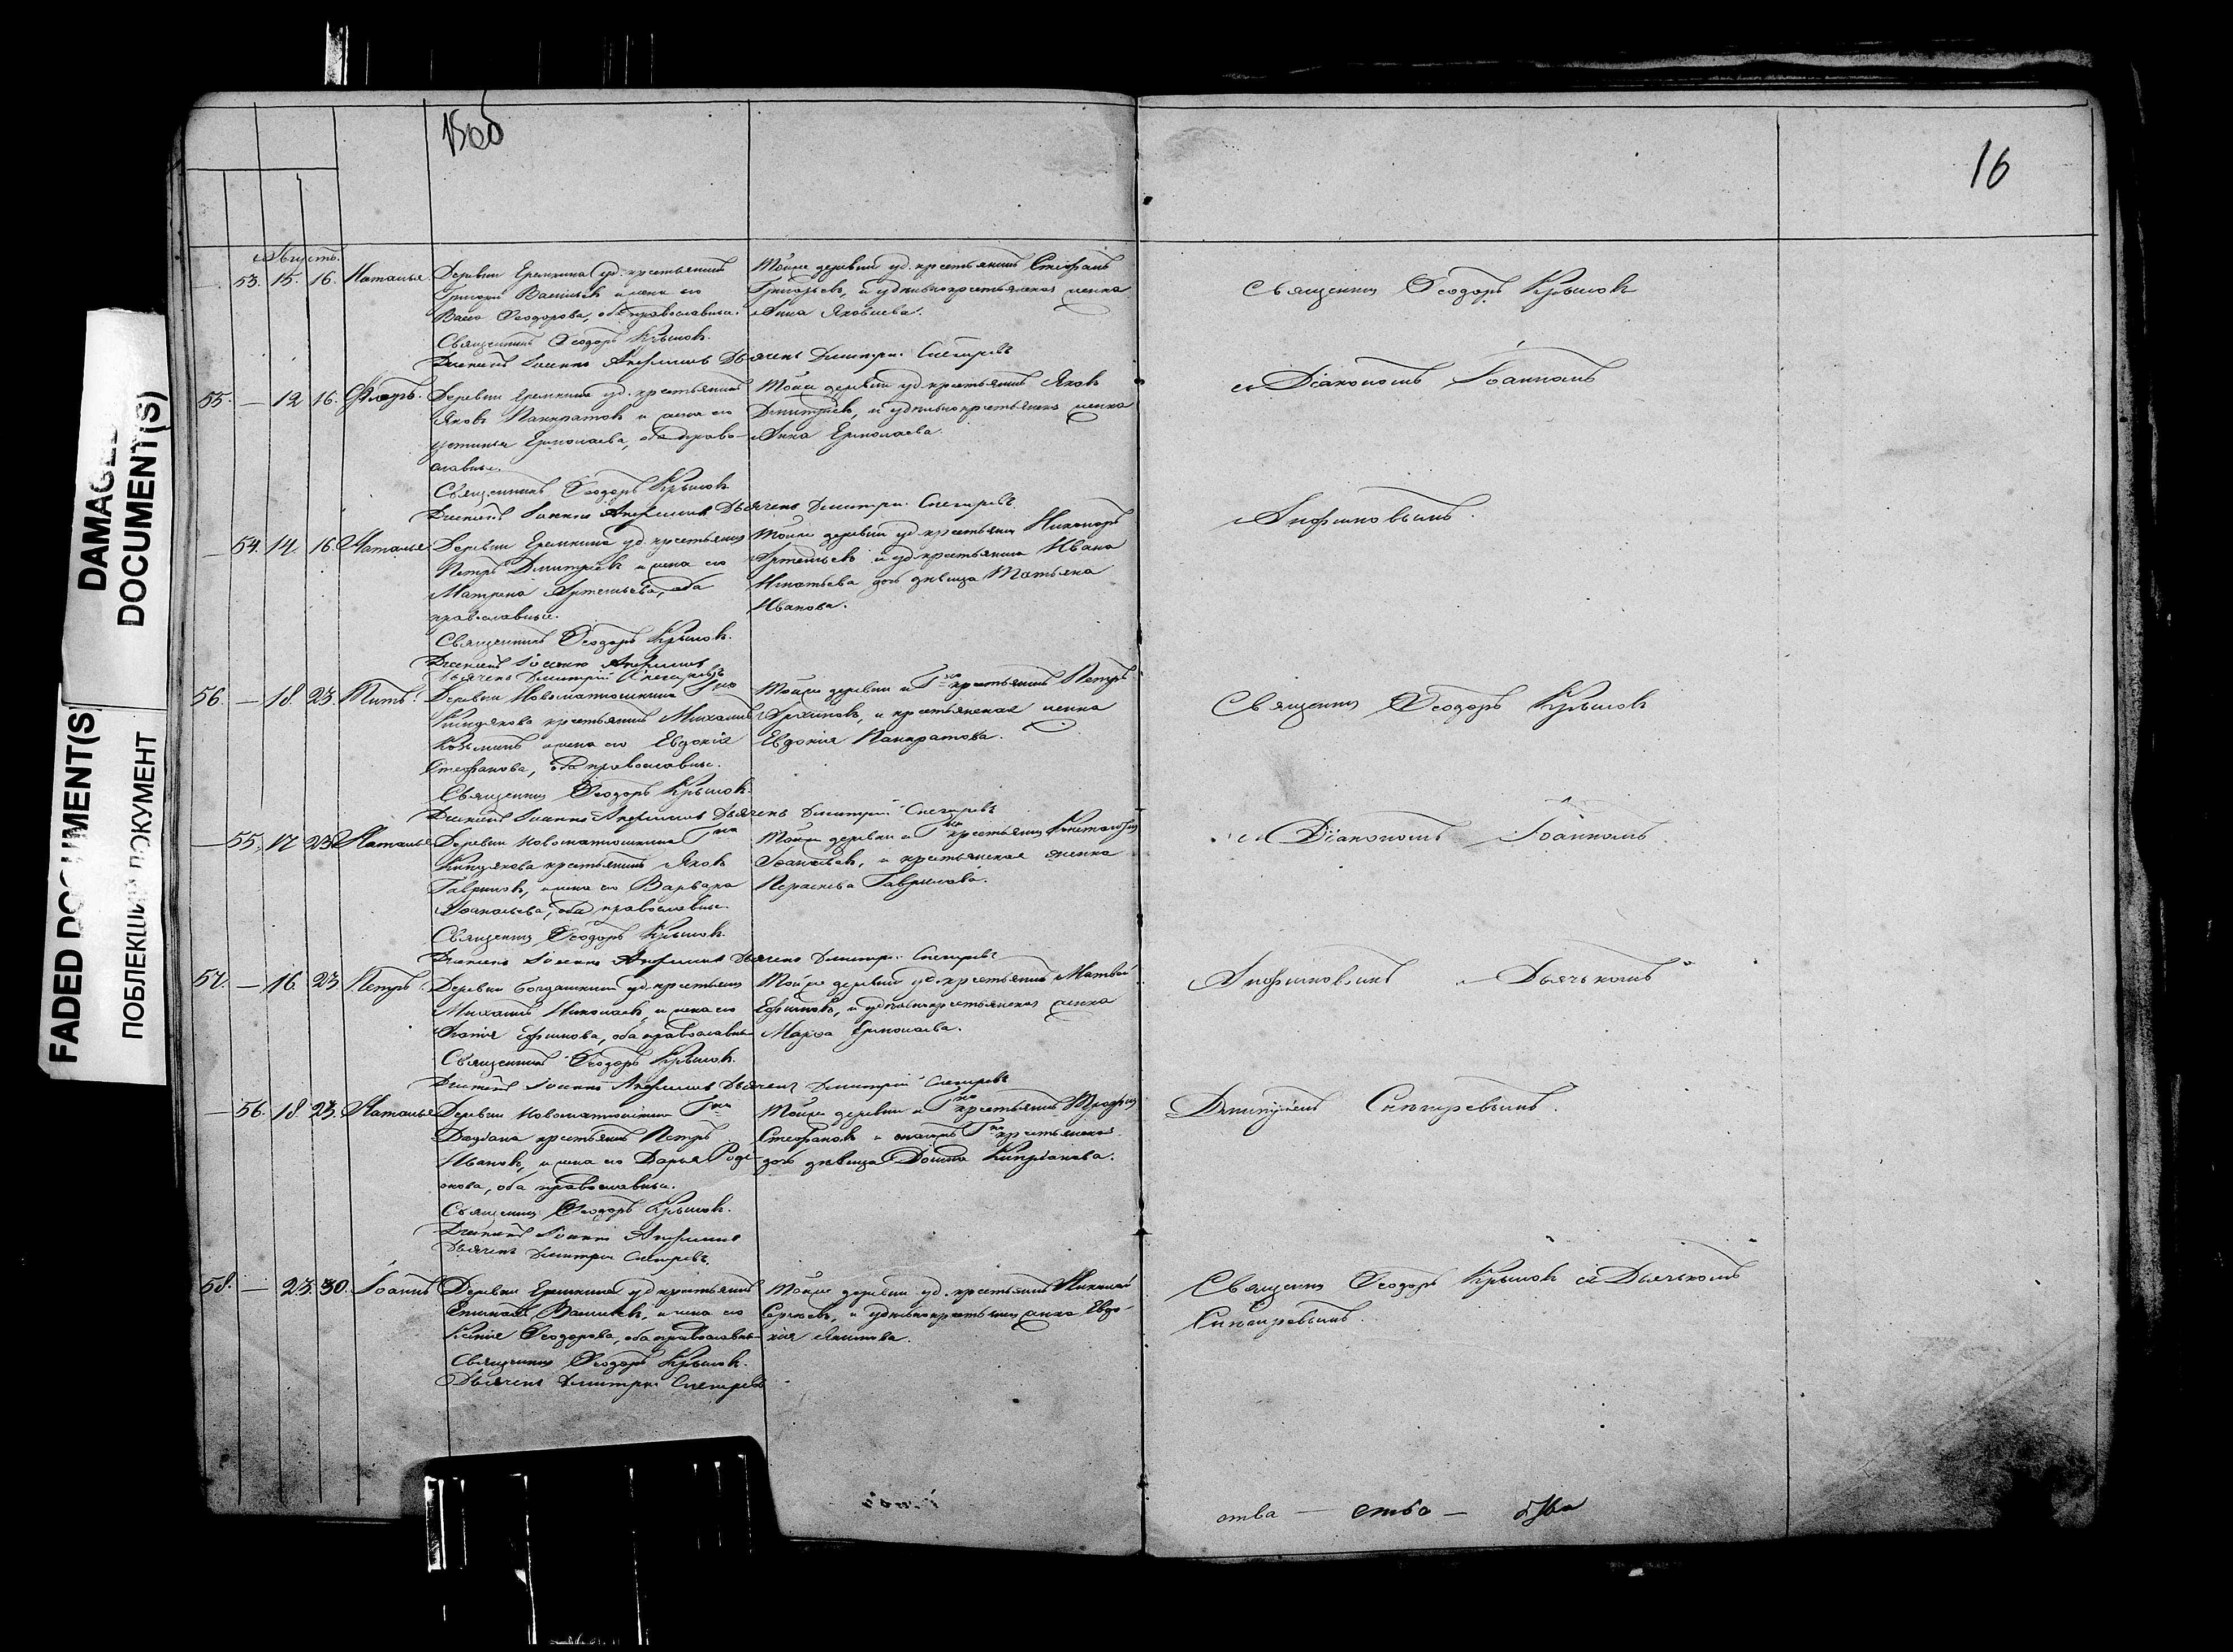 1860
16
Августъ.
53. 15. 16. Наталья
Деревни Еремкина уд. крестьянинъ
Григорій Васильевъ и жена его
Васса Ѳеодорова, оба православные.
Священникъ Ѳеодоръ Крыловъ.
Діаконъ Іоаннъ Дьячекъ Дмитрій Снегиревъ
Тойже деревни уд. крестьянинъ Стефанъ
Григорьевъ, и удѣльнокрестьянская женка
Анна Яковлева.
Священникъ Ѳеодоръ Крыловъ
55. — 12 16. Флоръ.
Деревни Еремкина уд. крестьянинъ
Яковъ Панкратовъ и жена его
Устинья Ермолаева, оба право-
славные.
Священникъ Ѳеодоръ Крыловъ
Діаконъ Іоаннъ Дьячекъ Дмитрій Снегиревъ
Тойже деревни уд. крестьянинъ Яковъ
Дмитріевъ, и удѣльнокрестьянская женка
Анна Ермолаева.
съ Діакономъ Іоанномъ
— 54. 14. 16. Наталья
Деревни Еремкина уд. крестьянинъ
Петръ Дмитріевъ и жена его
Матрена Артемьева, оба
православные.
Священникъ Ѳеодоръ Крыловъ.
Діаконъ Іоаннъ
Дьячекъ Дмитрій Снегиревъ
Тойже деревни уд. крестьянинъ Никаноръ
Артемьевъ и уд. крестьянина Ивана
Игнатьева дочь дѣвица Татьяна
Иванова.
56. — 18. 23. Титъ.
Деревни Новоматюшкина Гна
Киндякова крестьянинъ Михаилъ
Козьминъ и жена его Евдокія
Стефанова, оба православные.
Священникъ Ѳеодоръ Крыловъ.
Діаконъ Іоаннъ Дьячекъ Дмитрій Снегиревъ
Тойже деревни и Гна крестьянинъ Петръ
Архиповъ, и крестьянская женка
Евдокія Панкратова.
Священникъ Ѳеодоръ Крыловъ
— 55. 17 23. Наталья
Деревни Новоматюшкина Гна
Киндякова крестьянинъ Яковъ
Гавриловъ, и жена его Варвара
оба православные.
Священникъ Ѳеодоръ Крыловъ.
Діаконъ Іоаннъ Дьячекъ Дмитрій Снегиревъ
Тойже деревни и Гна крестьянинъ
и крестьянская женка
Гаврилова.
съ Діакономъ Іоанномъ
57. — 16 23 Петръ.
Деревни Богдашкина уд. крестьянинъ
Михаилъ Николаевъ, и жена его
Ефимова, оба православные
Священникъ Ѳеодоръ Крыловъ.
Діаконъ Іоаннъ Дьячекъ Дмитрій Снегиревъ
Тойже деревни уд. крестьянинъ Матвѣй
Ефимовъ, и удѣльнокрестьянская женка
Марѳа Ермолаева.
и Дьячькомъ
— 56. 18. 23. Наталья
Деревни Новоматюшкина Гна
крестьянинъ Петръ
Ивановъ, и жена его Дарья Роді-
онова, оба православные.
Священникъ Ѳеодоръ Крыловъ.
Діаконъ Іоаннъ
Дьячекъ Дмитрій Снегиревъ.
Тойже деревни и Гна крестьянинъ
Стефановъ и Гна крестьянская
дочь дѣвица Кипріанова.
Дмитріемъ Снѣгиревымъ.
58. — 23. 30. Іоаннъ
Деревни Еремкина уд. крестьянинъ
Васильевъ, и жена его
Ксенія Ѳеодорова, оба православные
Священникъ Ѳеодоръ Крыловъ.
Дьячекъ Дмитрій Снегиревъ
Тойже деревни уд. крестьянинъ Николай
Сергѣевъ, и удѣльнокрестьянск женка Евдо-
кія
Священникъ Ѳеодоръ Крыловъ съ Дьячькомъ
Снѣгиревымъ.
ства — ство —
DAMAGED
DOCUMENT(S)
FADED DOCUMENT(S)
ПОБЛЕКШИЙ ДОКУМЕНТ